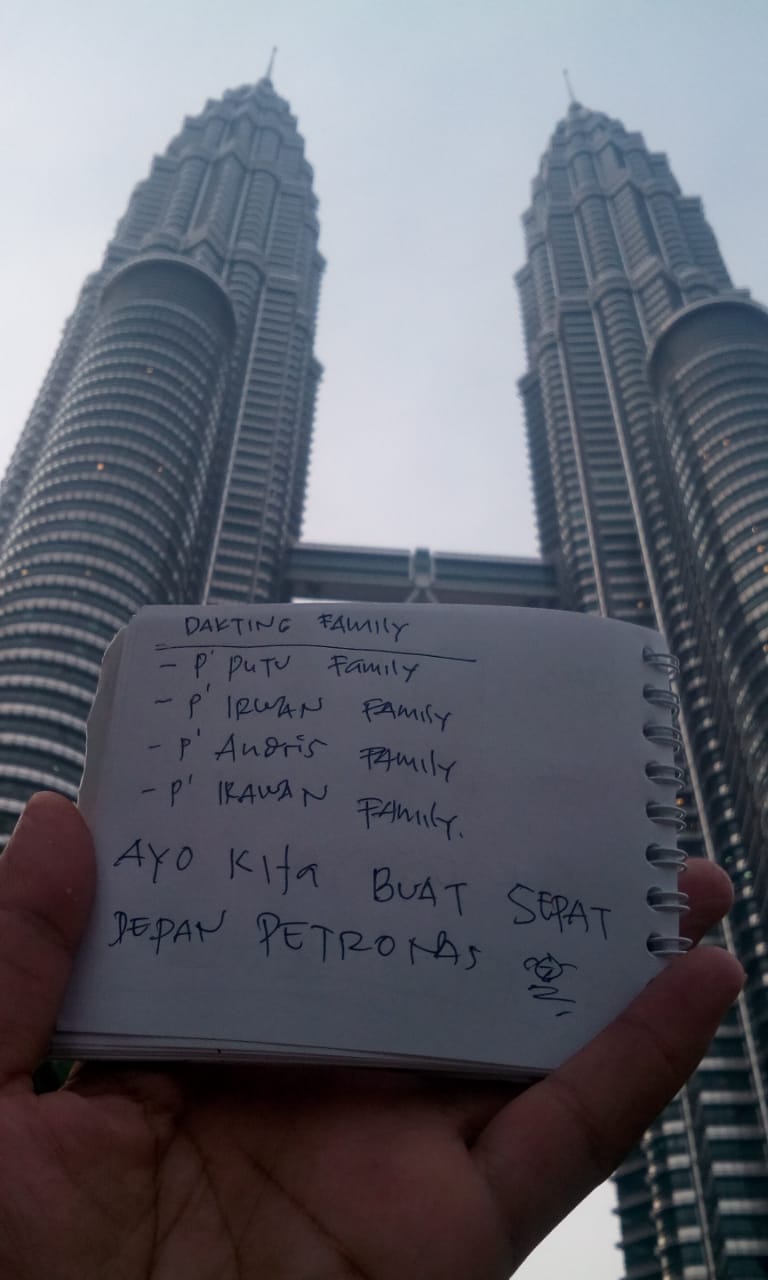 DAKTING FAMILY
- P' PUTU Family
- P' IRWAN FAMILY
- P' Andris FAMILY
- P' IRAWAN FAMILY.
AYO KITA BUAT SEPAT
DEPAN PETRONAS